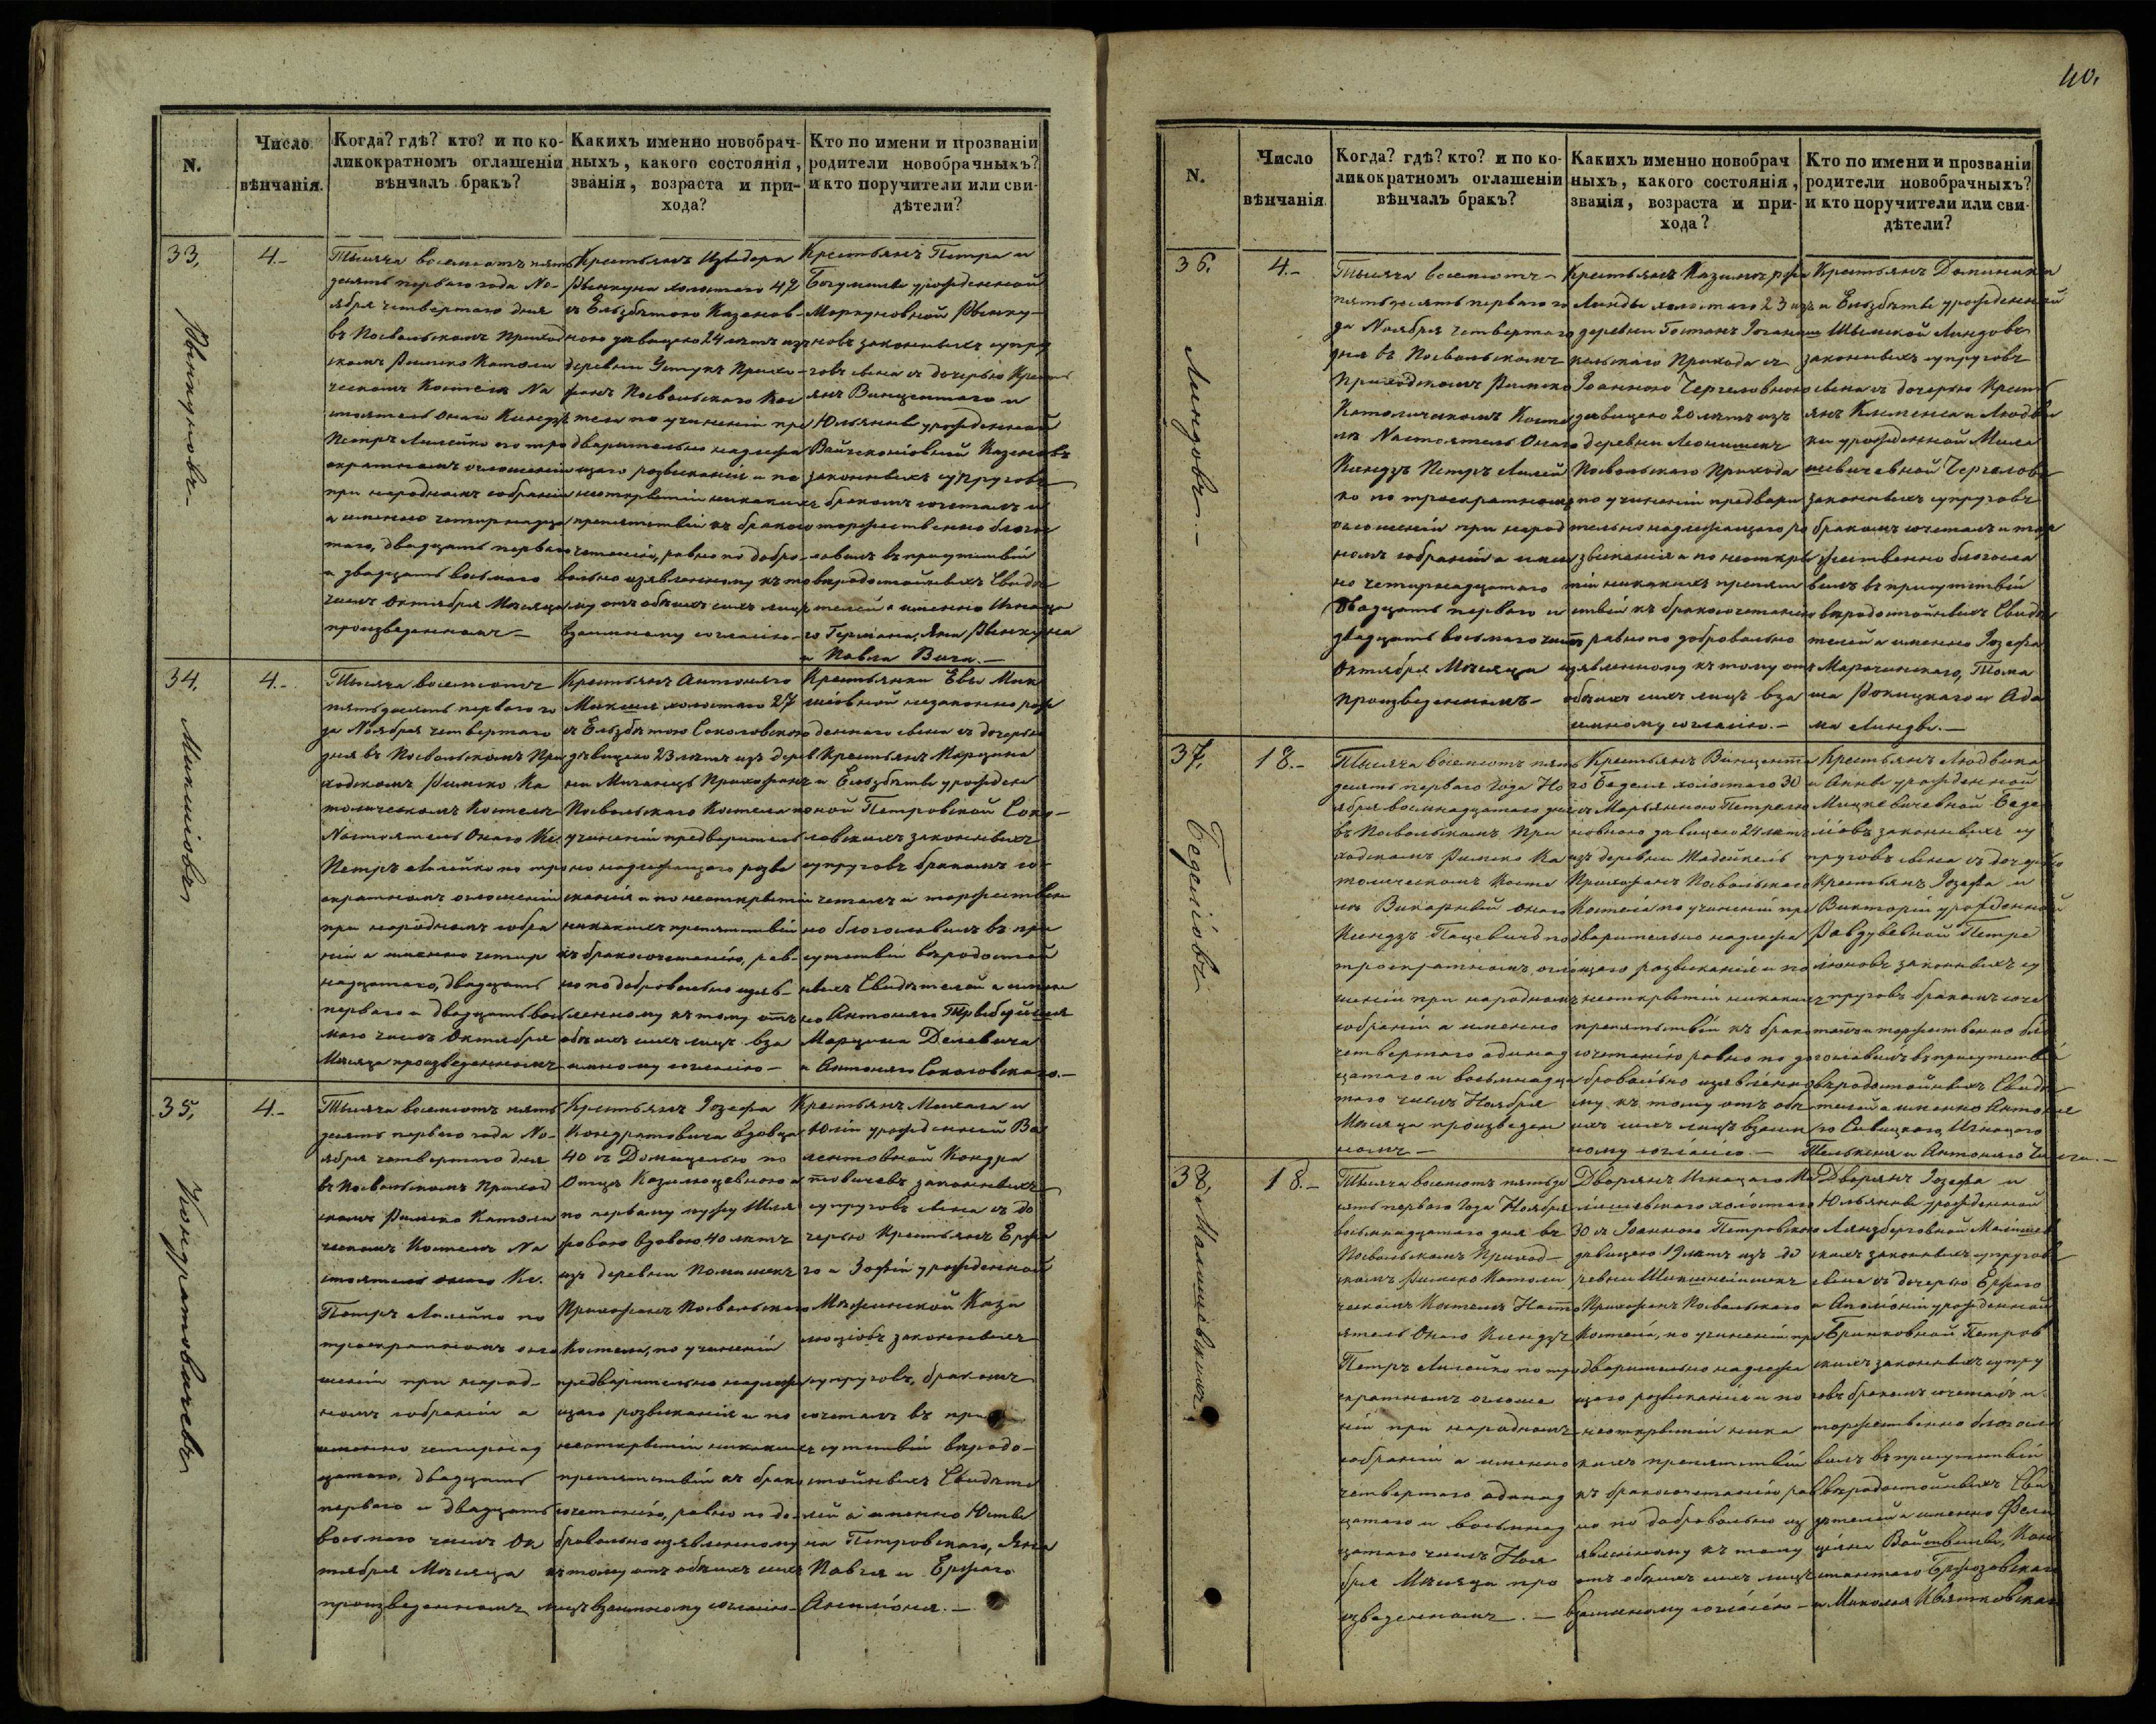 40.
N.
Число
вѣнчанія.
Когда? гдѣ? кто? и по ко-
ликократномъ оглашеніи
вѣнчалъ бракъ?
Какихъ именно новобрач-
ныхъ, какого состоянія,
званія, возраста и при-
хода?
Кто по имени и прозванію
родители новобрачныхъ?
и кто поручители или сви-
дѣтели?
33,
4.-
Тысяча восемьсотъ пять
десять перваго года Но-
ября четвертаго дня
въ Посвольскомъ Приход
скомъ Римско Католи
ческомъ Костелѣ На
стоятель онаго Ксендзъ
Петръ Лилейко по тро
екратномъ оглошеніи
при народномъ собраніи
а именно четырнадца
таго, двадцать перваго
и двадцать восьмаго
числъ Октября Мѣсяца
произведенномъ -
Крестьянъ Изыдора
холостаго 42
съ Ельзбѣтою
ною дѣвицею 24 лѣтъ изъ
деревни Прихо-
жанъ Посвольскаго Кос
тела по учиненіи пре
дварительно надлежа
щаго розысканія и по
неоткрытіи никакихъ
препятствій къ бракосо
четанію, равно по добро-
вольно изявленному къ то
му отъ обѣихъ сихъ лицъ
взаимному согласію -
Крестьянъ Петра и
Богумилы урожденной
законныхъ супру
говъ сына съ дочерью Кресть
янъ Винцентаго и
Юльянны урожденной
законныхъ супруговъ
бракомъ сочеталъ и
торжественно благос
ловилъ въ присутствіи
вѣродостойныхъ Свидѣ
телей а именно Игнаца
го Германа, Яна
и Павла
34,
4.-
Микшіовъ
Тысяча восемьсотъ
пятьдесять перваго го
да Ноября четвертаго
дня въ Посвольскомъ При
ходскомъ Римско Ка
толическомъ Костелѣ
Настоятель Онаго Кс.
Петръ Лилейко по тро
екратномъ оглошеніи
при народномъ собра
ніи а именно четыр
надцатаго, двадцать
перваго и двадцать вось
маго числъ Октября
Мѣсяца произведенномъ
Крестьянъ Антонего
Микши холостаго 27
съ Ельзбѣтою Соколовскою
дѣвицею 23 лѣтъ изъ дерев
ни Прихожанъ
Посвольскаго Костела по
учиненіи предварительно
надлежащаго розы
сканія и по неоткрытіи
никакихъ препятствій
къ бракосочетанію, рав-
но по добровольно изяв-
ленному къ тому отъ
обѣихъ сихъ лицъ вза
имному согласію -
Крестьянки Евы Мик
шіовной незаконно рож
деннаго сына съ дочерью
Крестьянъ Марцина
и Ельзбѣты урожден
ной Петровской Соко-
ловскихъ законныхъ
супруговъ бракомъ со
четалъ и торжествен
но благословилъ въ при
сутствіи вѣродостой
ныхъ Свидѣтелей а имен
но Антонего
Марцина
и Антонего Соколовскаго.-
35,
4.-
Кондратовичевъ
Тысяча восемьсотъ пять
десять перваго года Но-
ября четвертаго дня
въ Посвольскомъ Приход
скомъ Римско Католи
ческомъ Костелѣ На
стоятель онаго Кс.
Петръ Лилейко по
троекратномъ огло
шеніи при народ-
номъ собраніи а
именно четырнад
цатаго, двадцать
перваго и двадцать
восьмаго числъ Ок
тября Мѣсяца
произведенномъ
Крестьянъ Іозефа
Кондратовича вдовца
40 съ Домицелью по
Отцу
по первому мужу
вдовою 40 лѣтъ
изъ деревни
Прихожанъ Посвольскаго
Костела, по учиненіи
предварительно надлежа
щаго розысканія и по
неоткрытіи никакихъ
препятствій къ брако
сочетанію, равно по до-
бровольно изявленному
къ тому отъ обѣихъ сихъ
лицъ взаимному согласію-
Крестьянъ Михала и
Юліи урожденной
Кондра
товичевъ законныхъ
супруговъ сына съ до
черью Крестьянъ Ержа
го и Зофіи урожденной
законныхъ
супруговъ, бракомъ
сочеталъ въ при
сутствіи вѣродо-
стойныхъ Свидѣте
лей а именно Юсты
на Петровскаго, Яна
Павля и Ержаго
36.
4.-
Линдовъ.-
Тысяча восемьсотъ-
пятьдесять перваго го
да Ноября четвертаго
дня въ Посвольскомъ
Приходскомъ Римско
Католическомъ Косте
лѣ Настоятель Онаго
Ксендзъ Петръ Лилей
ко по троекратномъ
оглошеніи при народ
номъ собраніи а имен
но четырнадцатаго
двадцать перваго и
двадцать восьмаго числъ
Октября Мѣсяца
произведенномъ-
Крестьянъ Казимержа
Линды холостаго 23 изъ
деревни
Прихода съ
Іоанною
дѣвицею 20 лѣтъ изъ
деревни
Посвольскаго Прихода
по учиненіи предвари
тельно надлежащаго ро
зысканія и по неоткры
тіи никакихъ препят
ствій къ бракосочетанію
равно по добровольно
изявленному къ тому отъ
обѣихъ сихъ лицъ вза
имному согласію.-
Крестьянъ Доминика
и Ельзбѣты урожденной
Линдовъ
законныхъ супруговъ
сына съ дочерью Кресть
янъ Клеменса и Людви
ки урожденной
законныхъ супруговъ
бракомъ сочеталъ и тор
жественно благосло
вилъ въ присутствіи
вѣродостойныхъ Свидѣ
телей а именно Іозефа
Тома
ша и Ада
ма Линды.-
37,
18.-
Беделіовъ
Тысяча восемьсотъ пять
десять перваго Года Но
ября восьмнадцатаго дня
въ Посвольскомъ При
ходскомъ Римско Ка
толическомъ Косте
лѣ Викарный онаго
Ксендзъ Пацевичъ по
троекратномъ огло
шеніи при народномъ
собраніи а именно
четвертаго одинад
цатаго и восьмнадца
таго числъ Ноября
Мѣсяца произведен
номъ-
Крестьянъ Винценте
го Беделя холостаго 30
съ Марьянною
дѣвицею 24 лѣтъ
изъ деревни
Прихожанъ Посвольскаго
Костела по учиненіи пре
дварительно надлежа
щаго розысканія и по
неоткрытіи никакихъ
препятствій къ брако
сочетанію равно по до
бровольно изявленно
му къ тому отъ обѣ
ихъ сихъ лицъ взаим
ному согласію.-
Крестьянъ Людвика
и Анны урожденной
Мицкевичевной Беде
ліовъ законныхъ су
пруговъ сына съ дочерью
Крестьянъ Іозефа и
Викторіи урожденной
законныхъ су
пруговъ бракомъ соче
талъ и торжественно бла
гословилъ въ присутствіи
вѣродостойныхъ Свидѣ
телей а именно Антоне
го Игнацаго
и Антонего
38,
18.-
Тысяча восемьсотъ пятьде
сять перваго Года Ноября
восьмнадцатаго дня въ
Посвольскомъ Приход-
скомъ Римско Католи
ческомъ Костелѣ Насто
ятель Онаго Ксендзъ
Петръ Лилейко по тро
екратномъ оглоше
ніи при народномъ
собраніи а именно
четвертаго одинад
цатаго и восьмнад
цатаго числъ Ноя
бря Мѣсяца про
изведенномъ.-
Дворянъ Игнацаго
холостаго
30 съ Іоанною Петровскою
дѣвицею 19 лѣтъ изъ де
ревни
Прихожанъ Посвольскаго
Костела, по учиненіи пре
дварительно надлежа
щаго розысканія и по
неоткрытіи ника
кихъ препятствій
къ бракосочетанію рав
но по добровольно из
явленному къ тому
отъ обѣихъ сихъ лицъ
взаимному согласію-
Дворянъ Іозефа и
Юльянны урожденной
скихъ законныхъ супруговъ
сына съ дочерью Ержаго
и Аполоніи урожденной
Петров
скихъ законныхъ супру
говъ бракомъ сочеталъ и
торжественно благосло
вилъ въ присутствіи
вѣродостойныхъ Сви
дѣтелей а именно Фели
ціяна Кон
стантаго
и Миколая